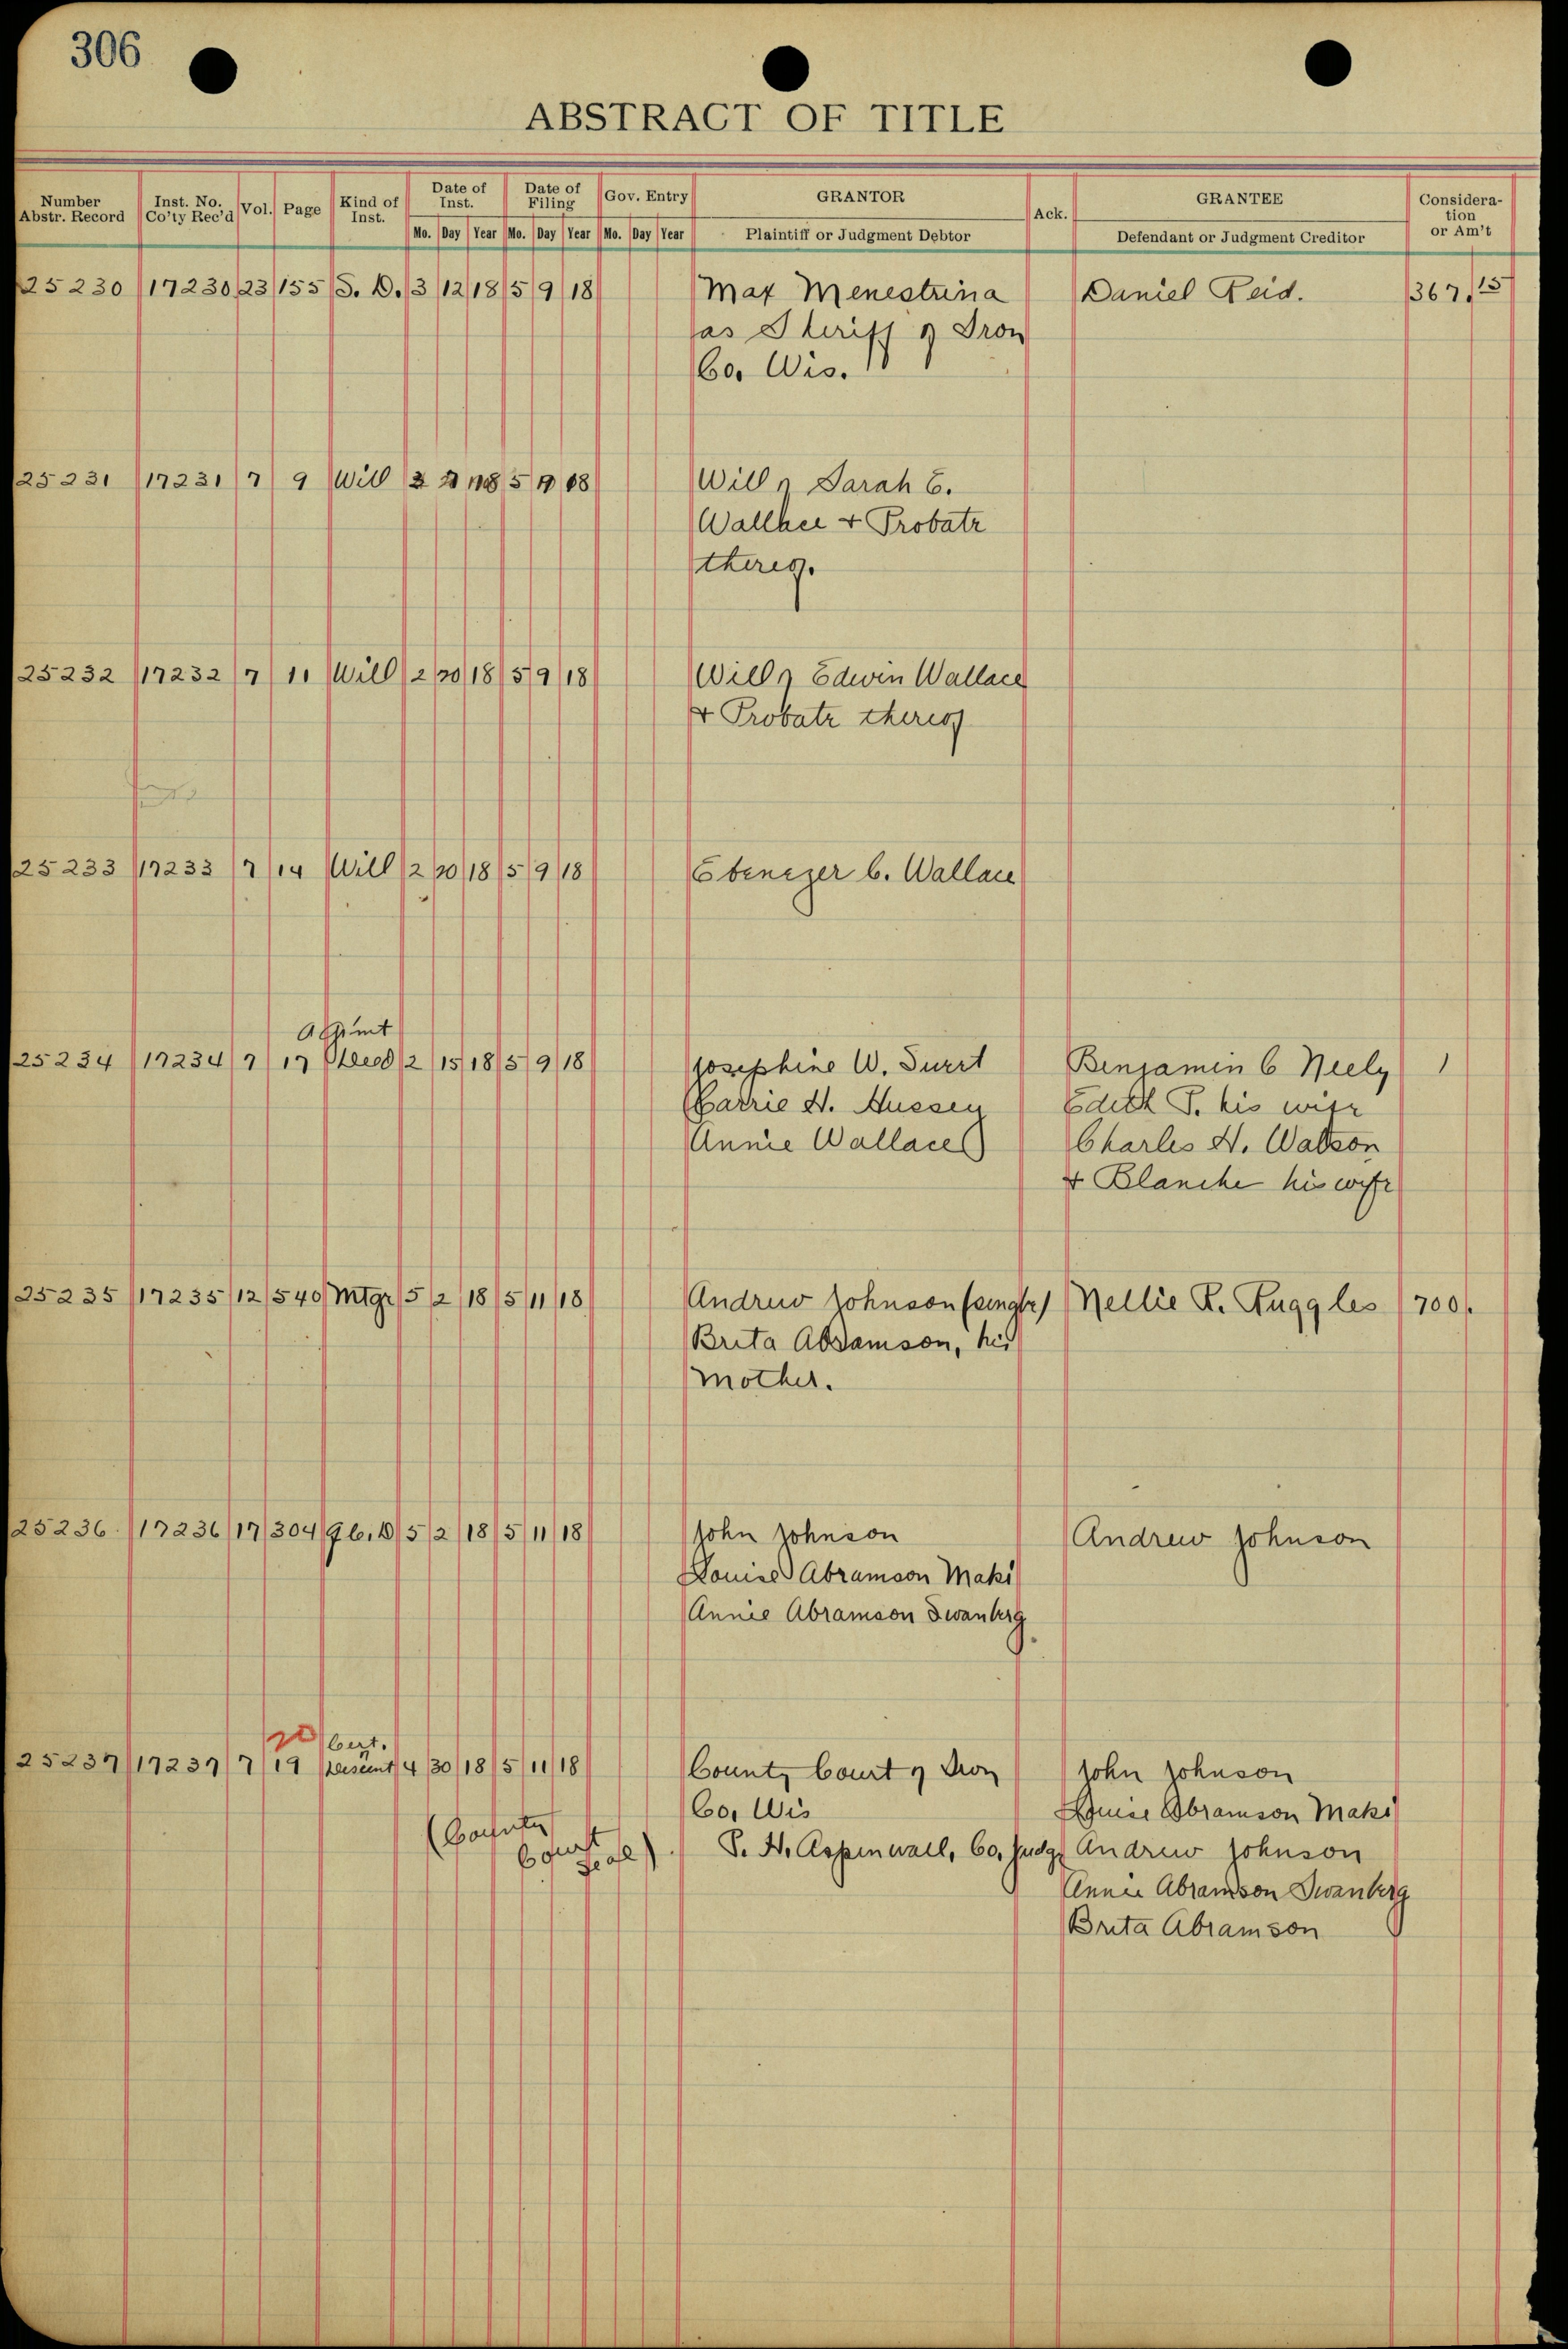 306
ABSTRACT OF TITLE
Number Abstr. Record Inst. No. Co'ty Rec'd Vol. Page Kind of Inst. Date of Inst. Date of Filing Gov. Entry GRANTOR Ack. GRANTEE Consideration or Am't
Mo. Day Year Mo. Day Year Mo. Day Year Plaintiff or Judgment Debtor Defendant or Judgment Creditor
25230 17230 23 155 S. D. 3 12 18 5 9 18 Max Menestrina Daniel Reid. 367.15
as Sheriff of Iron
Co. Wis.
25231 17231 7 9 Will 18 5 9 18 Will of Sarah E.
Wallace + Probate
thereof.
25232 17232 7 11 Will 2 20 18 5 9 18 Will of Edwin Wallace
+ Probate thereof
25233 17233 7 14 Will 2 20 18 5 9 18 Ebenezer C. Wallace
25234 17234 7 17 Deed 2 15 18 5 9 18 Josephine W. Benjamin C Neely 1
Carrie H. Hussey Edith T. his wife
Annie Wallace Charles H. Watson
+ Blanche his wife
25235 17235 12 540 Mtge 5 2 18 5 11 18 Andrew Johnson (single) Nellie R. Ruggles 700.
Brita Abramson, his
mother.
25236 17236 17 304 Q. C. D 5 2 18 5 11 18 John Johnson Andrew Johnson
Louise Abramson Maki
Annie Abramson Swanberg
20 Cert.
25237 17237 7 19 descent 4 30 18 5 11 18 County Court of Iron John Johnson
Co. Wis Louise Abramson Maki
(County Court Seal) T. H. Aspinwall, Co. Judge Andrew Johnson
Annie Abramson Swanberg
Brita Abramson